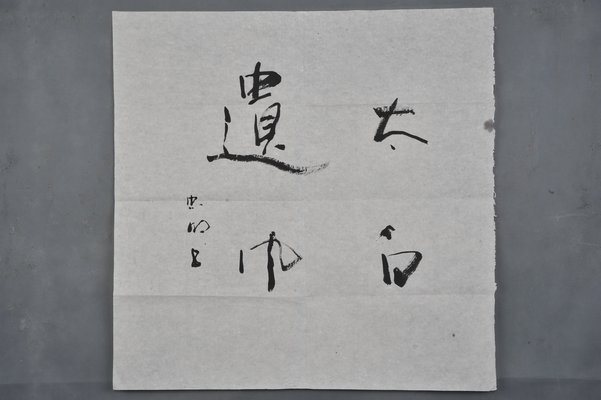 太白
遺風